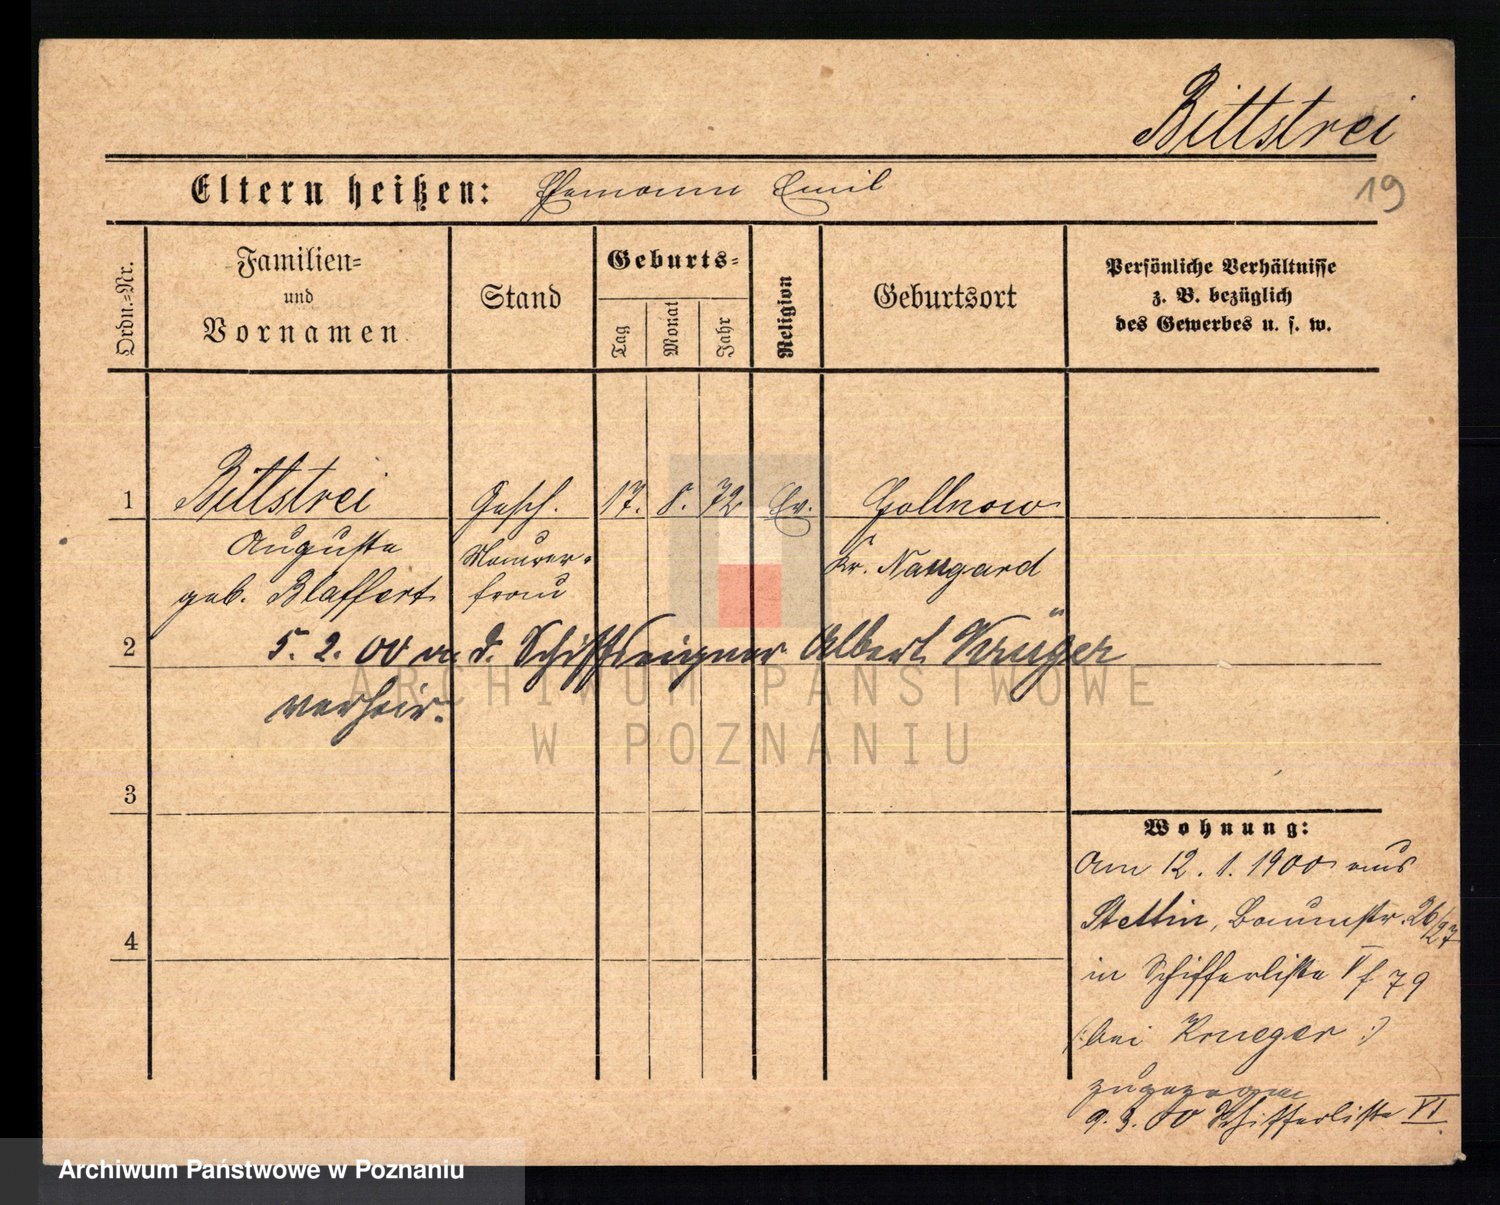 Bittstrei
Eltern heißen: Ehemann Emil
19
Ordn.-Nr.
Familien-
und
Vornamen
Stand
Geburts-
Tag
Monat
Jahr
Religion
Geburtsort
Persönliche Verhältnisse
z. B. bezüglich
des Gewerbes u. s. w.
1 Bittstrei Gesch. 17. 8. 72 Ev. Gollnow
Auguste Maurer- Kr. Naugard
geb. Blaffert frau
2 5. 2. 00 m. d. Schiffseigner Albert Krüger
verheir.
3
4
Wohnung:
Am 12. 1. 1900 aus
Stettin, Baumstr. 26/27
in Schifferliste V f 79
(: bei Krueger :)
zugezogen
9. 3. 00 Schifferliste VI
ARCHIWUM PAŃSTWOWE
W POZNANIU
Archiwum Państwowe w Poznaniu